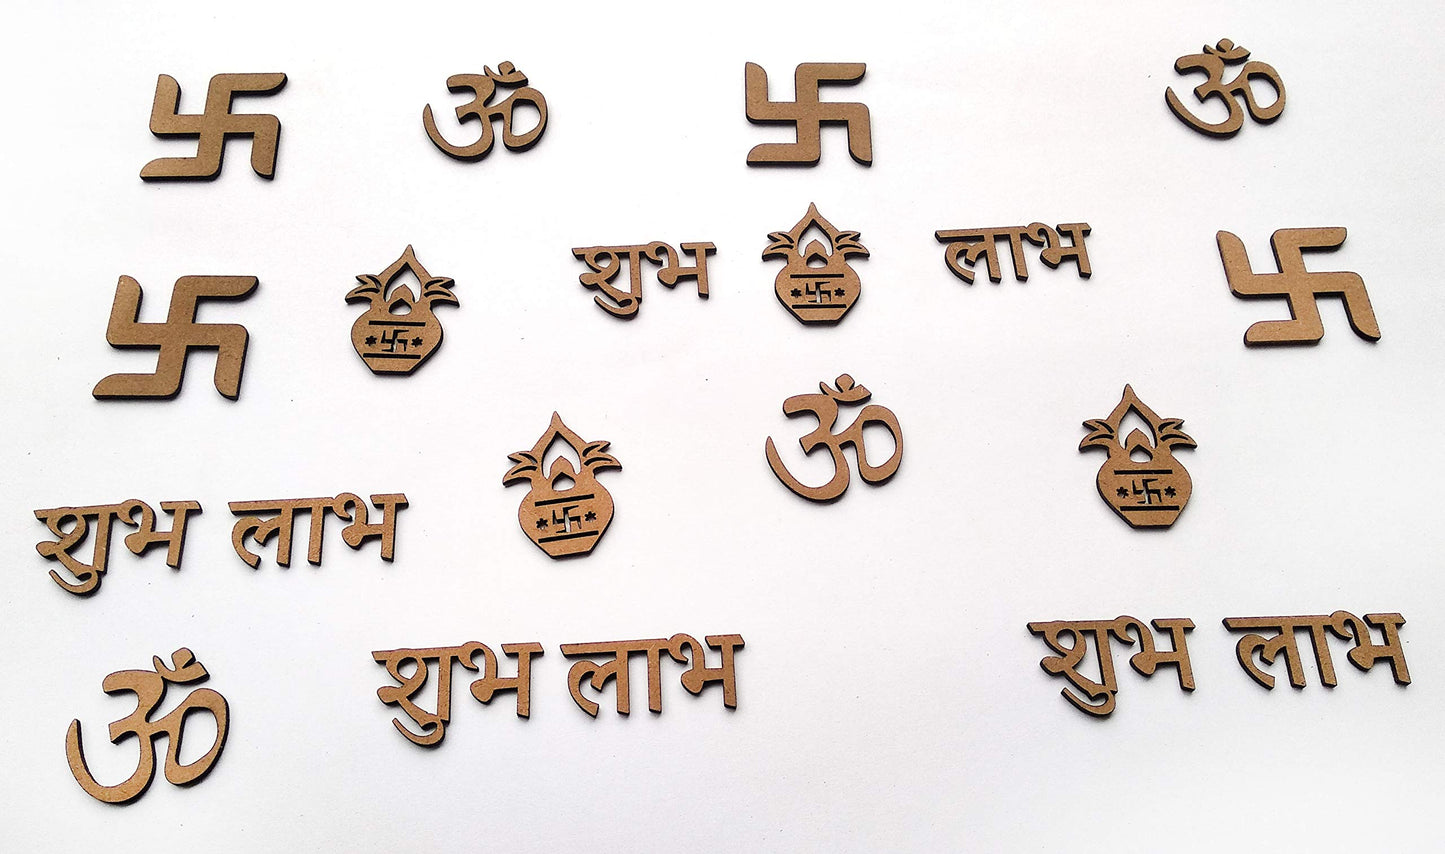 ॐ
ॐ
शुभ लाभ
ॐ
शुभ लाभ
शुभ लाभ
शुभ लाभ
ॐ